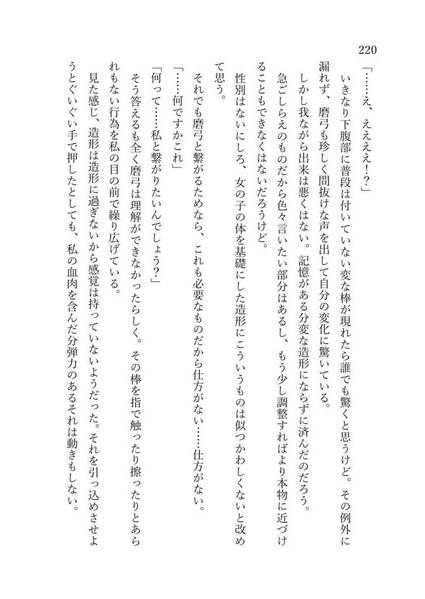 220
「……え、ええええ!?」
いきなり下腹部に普段は付いていない変な棒が現れたら誰でも驚くと思うけど。その例外に
漏れず、磨弓も珍しく間抜けな声を出して自分の変化に驚いている。
しかし我ながら出来は悪くはない。記憶がある分変な造形にならずに済んだのだろう。
急ごしらえのものだから色々言いたい部分はあるし、もう少し調整すればより本物に近づけ
ることもできなくはないだろうけど。
性別はないにしろ、女の子の体を基礎にした造形にこういうものは似つかわしくないと改め
て思う。
それでも磨弓と繋がるためなら、これも必要なものだから仕方がない……仕方がない。
「……何ですかこれ」
「何って……私と繋がりたいんでしょう?」
そう答えるも全く磨弓は理解ができなかったらしく。その棒を指で触ったり擦ったりとあら
れもない行為を私の目の前で繰り広げている。
見た感じ、造形は造形に過ぎないから感覚は持っていないようだった。それを引っ込めさせよ
うとぐいぐい手で押したとしても、私の血肉を含んだ分弾力のあるそれは動きもしない。